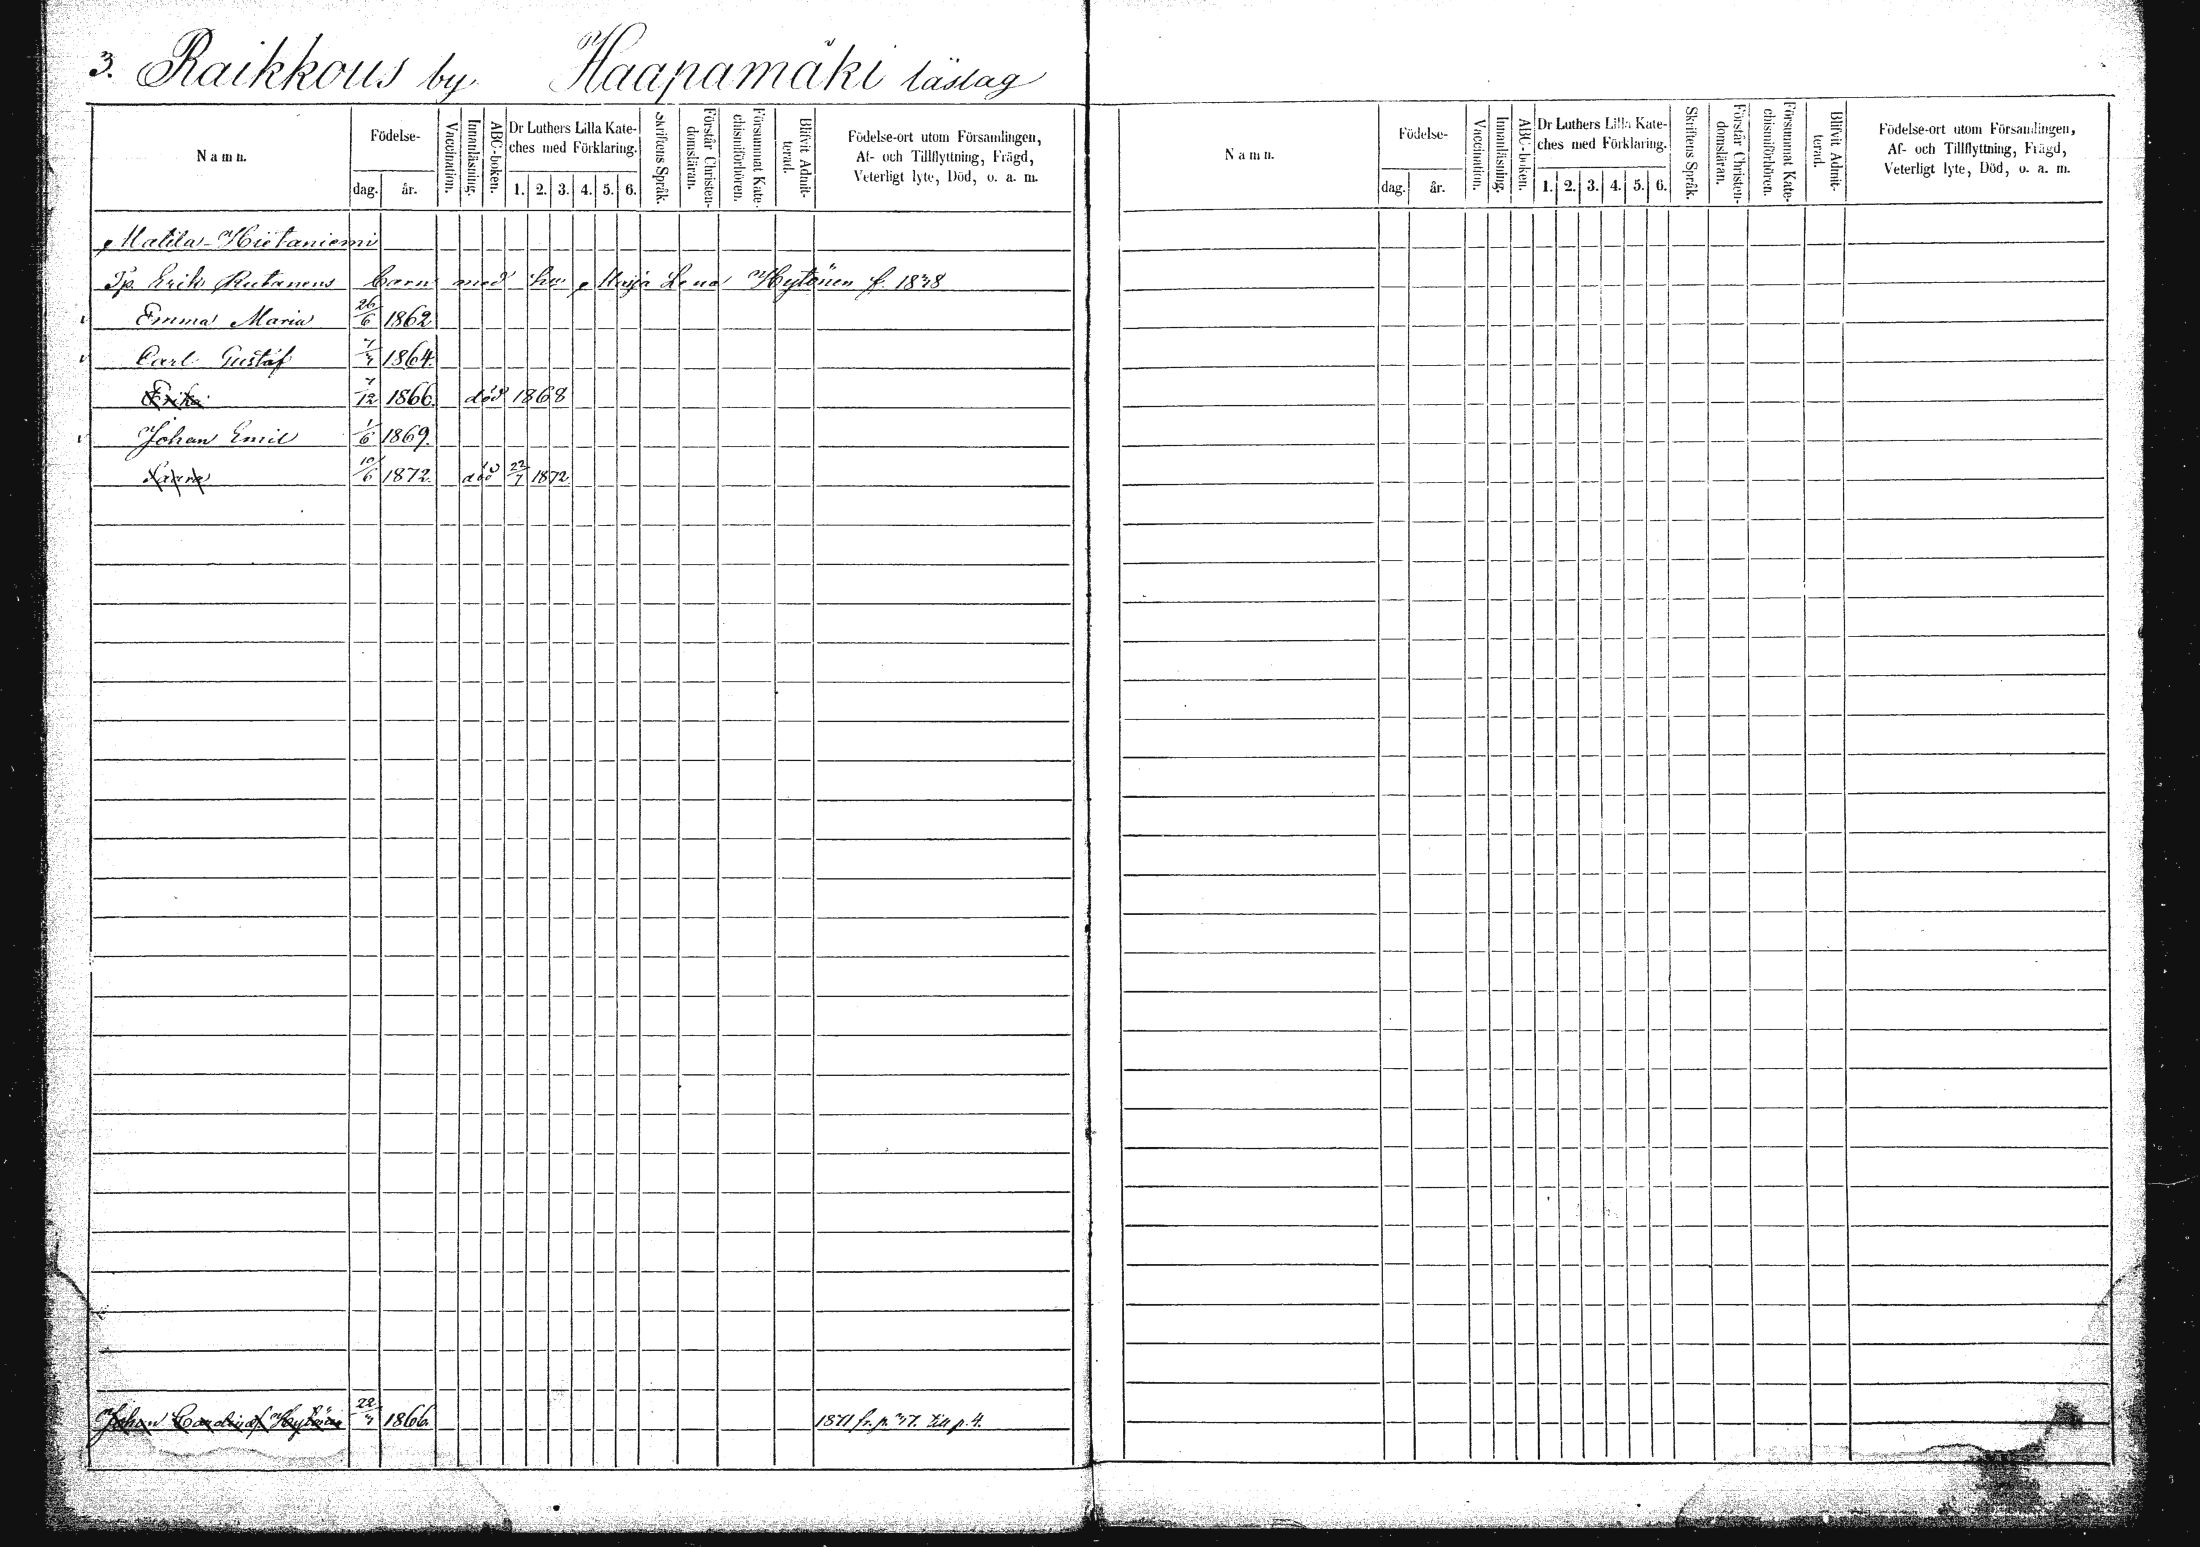 3. Raikkous by Haapamäki läslag
Namn.
Födelse-
dag. år.
Vaccination.
Innanläsning.
ABC-boken.
Dr Luthers Lilla Kate-
ches med Förklaring.
1. 2. 3. 4. 5. 6.
Skriftens Språk.
Förstår Christen-
domsläran.
Försummat Kate-
chismiförhören.
Blifvit Admit-
terad.
Födelse-ort utom Församlingen,
Af- och Tillflyttning, Frägd,
Veterligt lyte, Död, o. a. m.
Matila-Hietaniemi
Tp. Erik Rutanens barn med hu Maja Lena Hytönen f. 1838
Emma Maria 26/6 1862
Carl Gustaf 7/7 1864.
Erika 7/12 1866. död 1868
Johan Emil 1/6 1869.
Saara 10/6 1872. död 22/7 1872
Johan Carolinaf. Hytönen 22/7 1866. 1871 fr. p. 37. till p. 4.
Namn.
Födelse-
dag. år.
Vaccination.
Innanläsning.
ABC-boken.
Dr Luthers Lilla Kate-
ches med Förklaring.
1. 2. 3. 4. 5. 6.
Skriftens Språk.
Förstår Christen-
domsläran.
Försummat Kate-
chismiförhören.
Blifvit Admit-
terad.
Födelse-ort utom Församlingen,
Af- och Tillflyttning, Frägd,
Veterligt lyte, Död, o. a. m.